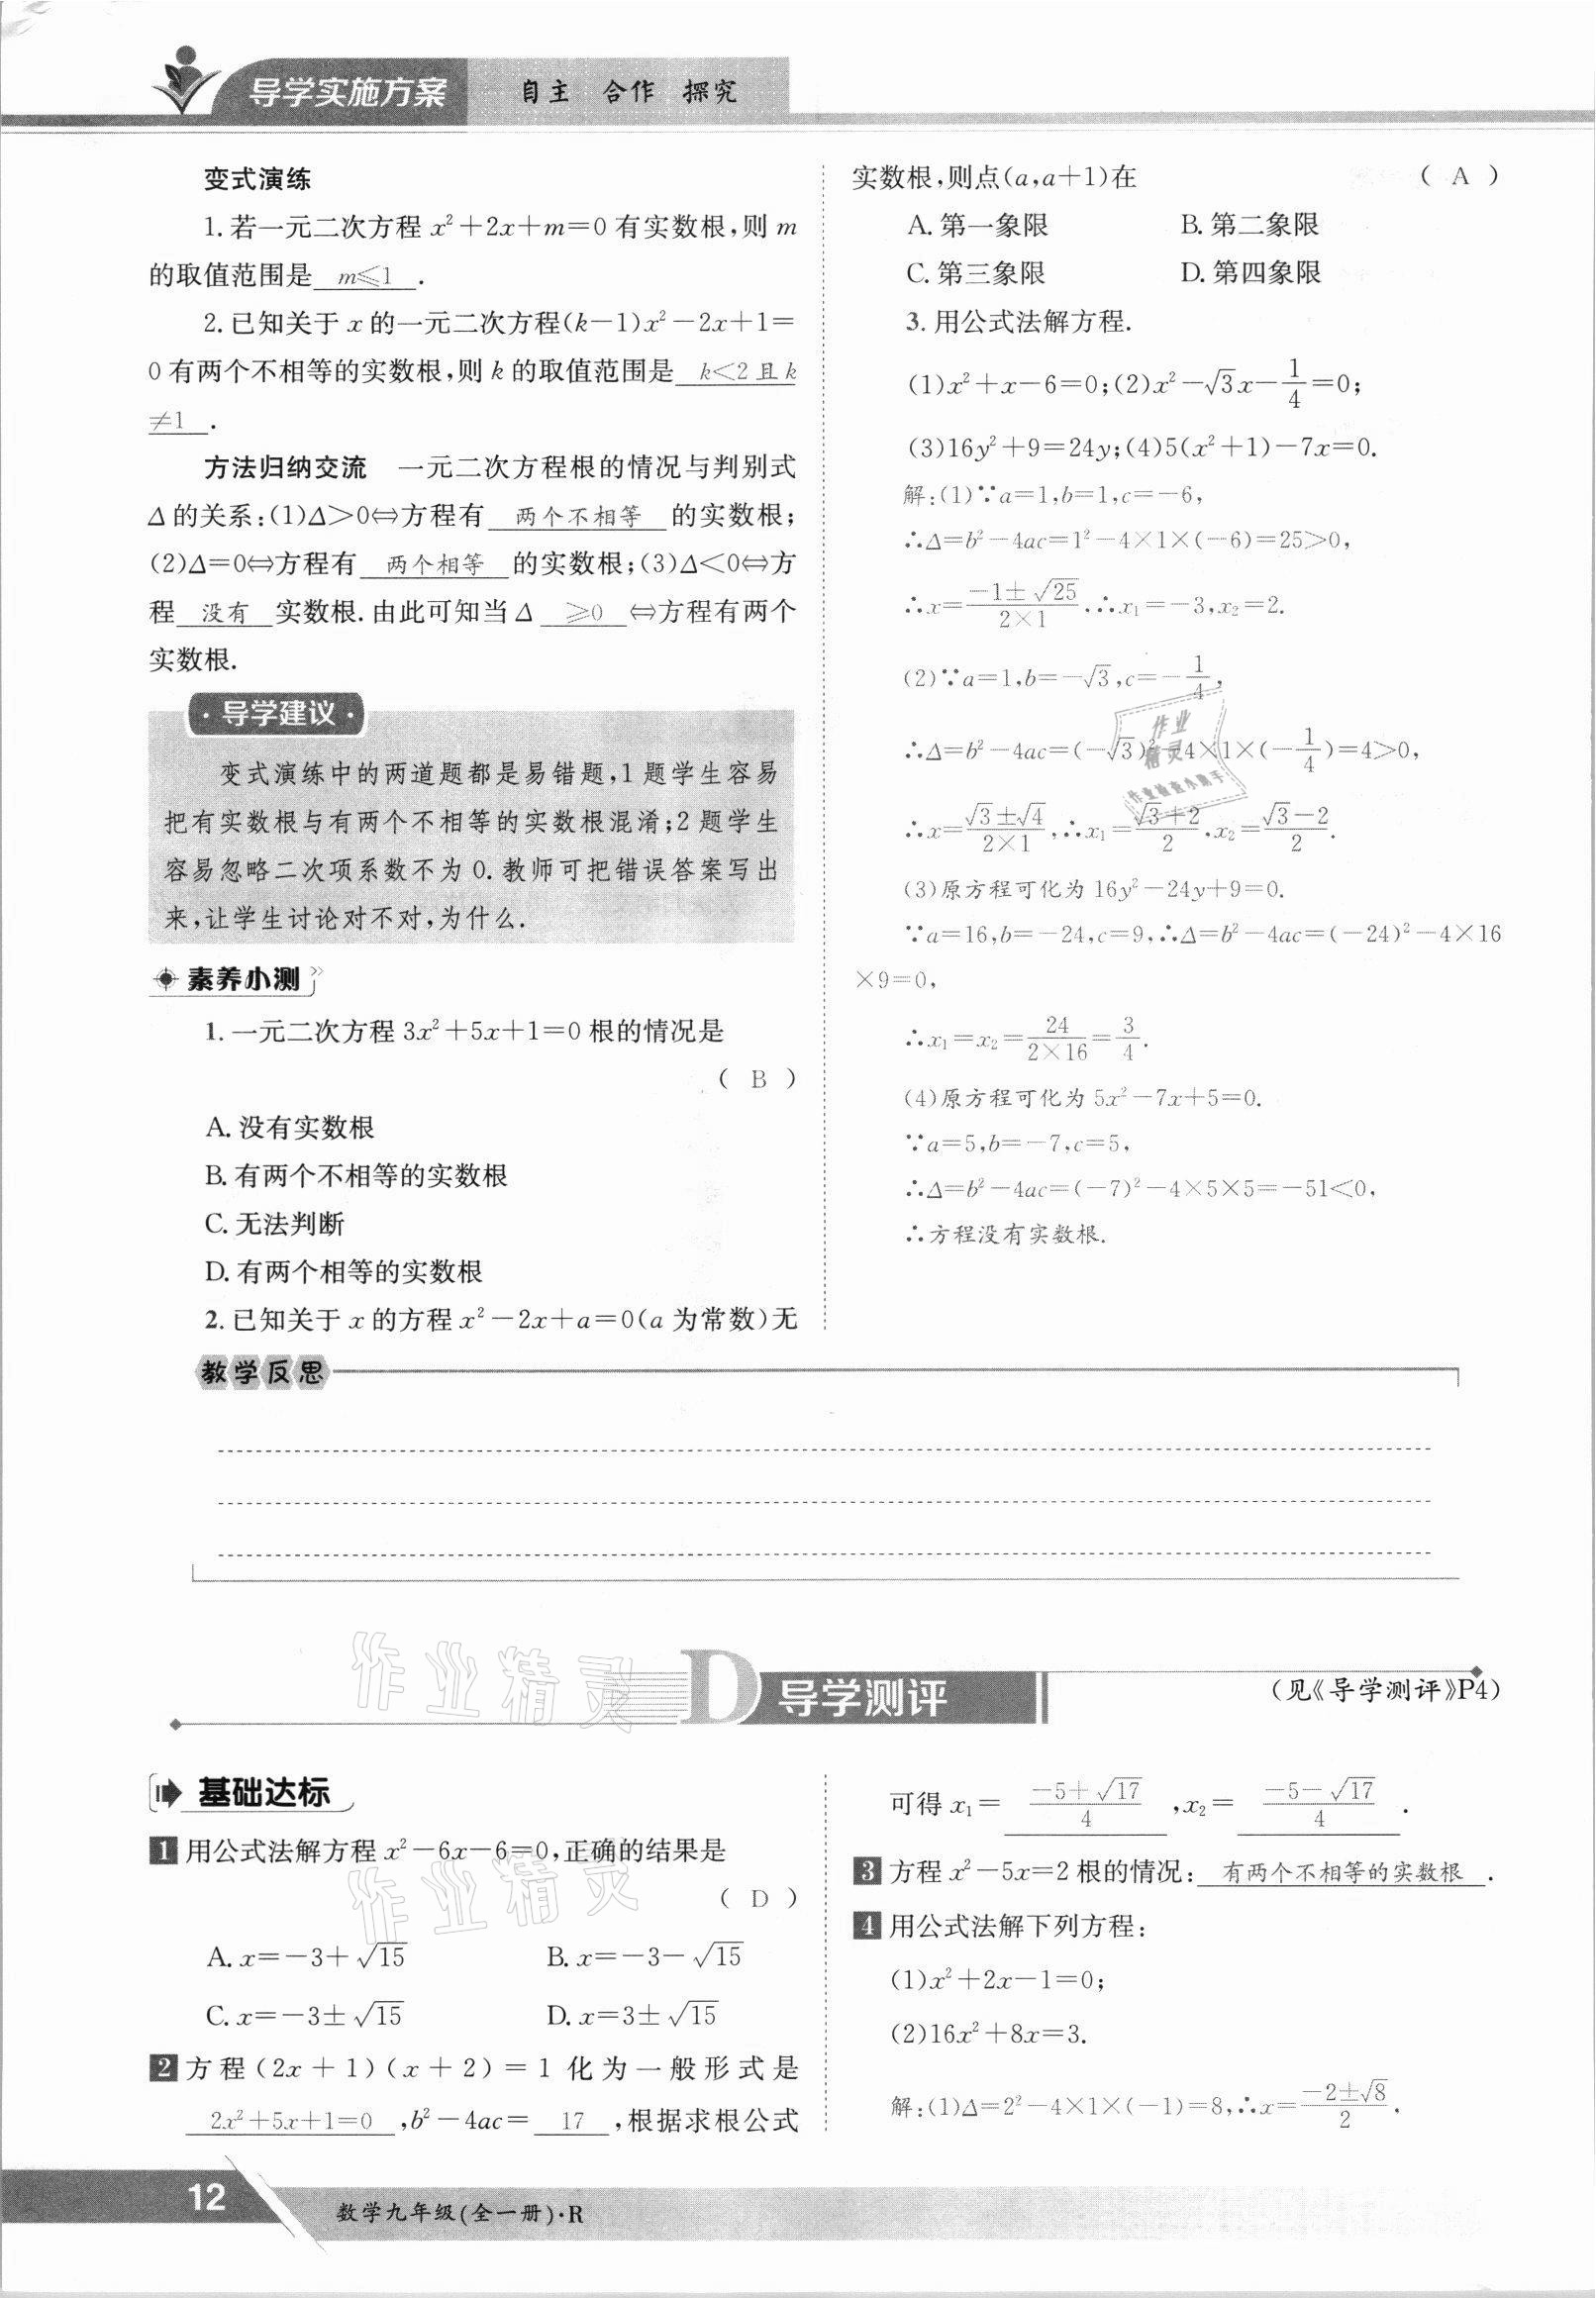 导学实施方案 自主 合作 探究
变式演练
1.若一元二次方程 x²+2x+m=0 有实数根,则 m
的取值范围是 m≤1 .
2.已知关于 x 的一元二次方程(k-1)x²-2x+1=
0 有两个不相等的实数根,则 k 的取值范围是 k<2 且 k
≠1 .
方法归纳交流 一元二次方程根的情况与判别式
Δ 的关系:(1)Δ>0⇔方程有 两个不相等 的实数根;
(2)Δ=0⇔方程有 两个相等 的实数根;(3)Δ<0⇔方
程 没有 实数根.由此可知当 Δ ≥0 ⇔方程有两个
实数根.
·导学建议·
变式演练中的两道题都是易错题,1 题学生容易
把有实数根与有两个不相等的实数根混淆;2 题学生
容易忽略二次项系数不为 0.教师可把错误答案写出
来,让学生讨论对不对,为什么.
素养小测
1.一元二次方程 3x²+5x+1=0 根的情况是
( B )
A.没有实数根
B.有两个不相等的实数根
C.无法判断
D.有两个相等的实数根
2.已知关于 x 的方程 x²-2x+a=0(a 为常数)无
实数根,则点(a,a+1)在 ( A )
A.第一象限 B.第二象限
C.第三象限 D.第四象限
3.用公式法解方程.
(1)x²+x-6=0;(2)x²-√3x-1/4=0;
(3)16y²+9=24y;(4)5(x²+1)-7x=0.
解:(1)∵a=1,b=1,c=-6,
∴Δ=b²-4ac=1²-4×1×(-6)=25>0,
∴x=(-1±√25)/(2×1).∴x₁=-3,x₂=2.
(2)∵a=1,b=-√3,c=-1/4,
∴Δ=b²-4ac=(-√3)²-4×1×(-1/4)=4>0,
∴x=(√3±√4)/(2×1),∴x₁=(√3+2)/2.x₂=(√3-2)/2.
(3)原方程可化为 16y²-24y+9=0.
∵a=16,b=-24,c=9,∴Δ=b²-4ac=(-24)²-4×16
×9=0,
∴x₁=x₂=24/(2×16)=3/4.
(4)原方程可化为 5x²-7x+5=0.
∵a=5,b=-7,c=5,
∴Δ=b²-4ac=(-7)²-4×5×5=-51<0,
∴方程没有实数根.
作业
精灵
作业检查小助手
教学反思
作业精灵
D 导学测评
(见《导学测评》P4)
基础达标
1 用公式法解方程 x²-6x-6=0,正确的结果是
( D )
作业精灵
A.x=-3+√15 B.x=-3-√15
C.x=-3±√15 D.x=3±√15
2 方程(2x+1)(x+2)=1 化为一般形式是
2x²+5x+1=0 ,b²-4ac= 17 ,根据求根公式
可得 x₁= (-5+√17)/4 ,x₂= (-5-√17)/4 .
3 方程 x²-5x=2 根的情况: 有两个不相等的实数根 .
4 用公式法解下列方程:
(1)x²+2x-1=0;
(2)16x²+8x=3.
解:(1)Δ=2²-4×1×(-1)=8,∴x=(-2±√8)/2.
12 数学九年级(全一册)·R